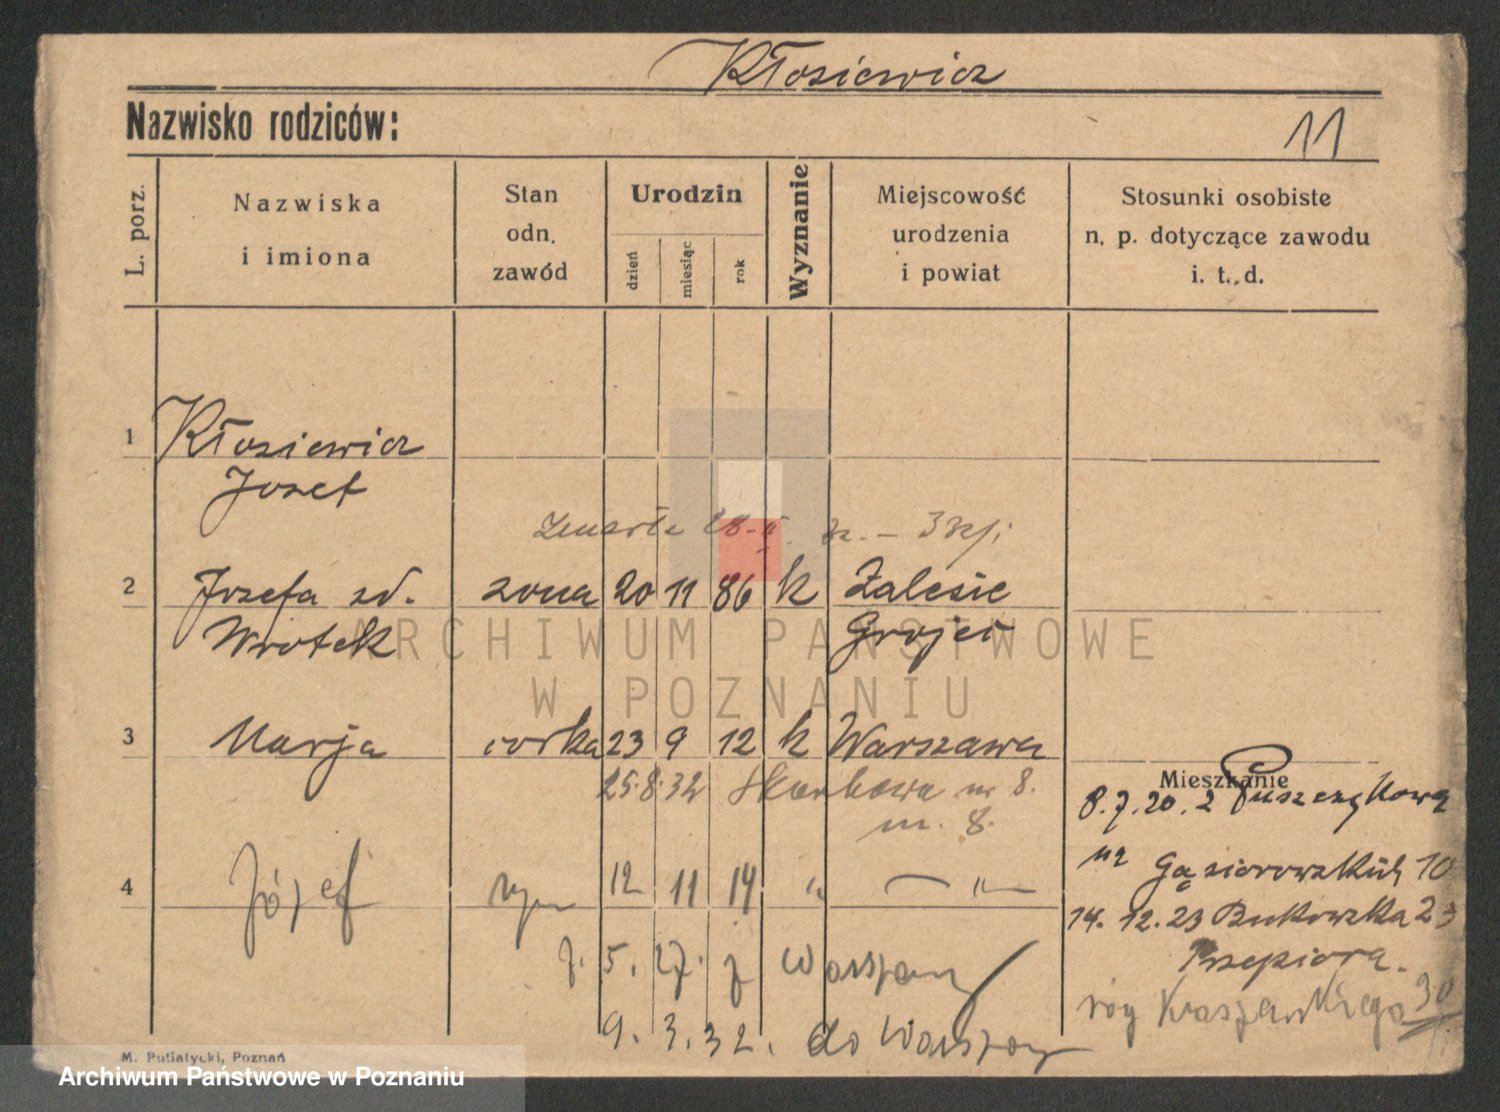 Kłosiewicz
Nazwisko rodziców:
11
L. porz.
Nazwiska
i imiona
Stan
odn.
zawód
Urodzin
dzień
miesiąc
rok
Wyznanie
Miejscowość
urodzenia
i powiat
Stosunki osobiste
n. p. dotyczące zawodu
i. t. d.
1 Kłosiewicz
Jozef
Zmarła 28
2 Jozefa zd. zona 20 11 86 k Zalesie
Wrotek Grojec
ARCHIWUM PAŃSTWOWE
W POZNANIU
3 Marja corka 23 9 12 k Warszawa
25.8.32 Skarbowa nr 8.
m. 8.
Mieszkanie
8.7.20.2 Puszczykowa
na Gąsiorowskich 10
4 Józef syn 12 11 14 " — " —
14.12.23 Bukowska 23
Przepiora.
7. 5. 27. z Warszawy
róg Kraszewskiego 30
9. 3. 32. do Warszawy
M. Putiatycki, Poznań
Archiwum Państwowe w Poznaniu